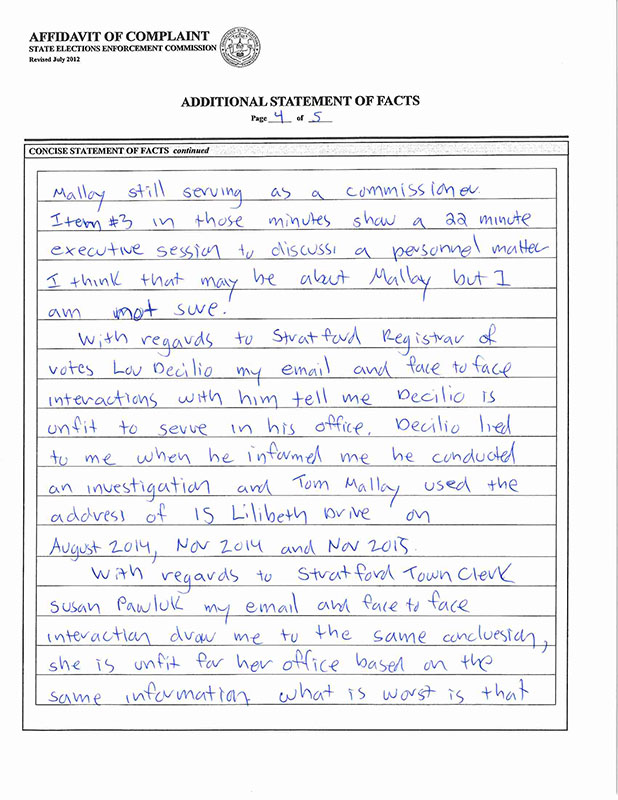 AFFIDAVIT OF COMPLAINT
STATE ELECTIONS ENFORCEMENT COMMISSION
Revised July 2012
ADDITIONAL STATEMENT OF FACTS
Page 4 of 5
CONCISE STATEMENT OF FACTS continued
Malloy still serving as a commissioner.
Item #3 in those minutes show a 22 minute
executive session to discuss a personnel matter
I think that may be about Malloy but I
am not sure.
With regards to Stratford Registrar of
votes Lou Decilio my email and face to face
interactions with him tell me Decilio is
unfit to serve in his office. Decilio lied
to me when he informed me he conducted
an investigation and Tom Malloy used the
address of 15 Lilibeth Drive on
August 2014, Nov 2014 and Nov 2015.
With regards to Stratford Town Clerk
Susan Pawluk my email and face to face
interaction draw me to the same concluesion,
she is unfit for her office based on the
same information what is worst is that